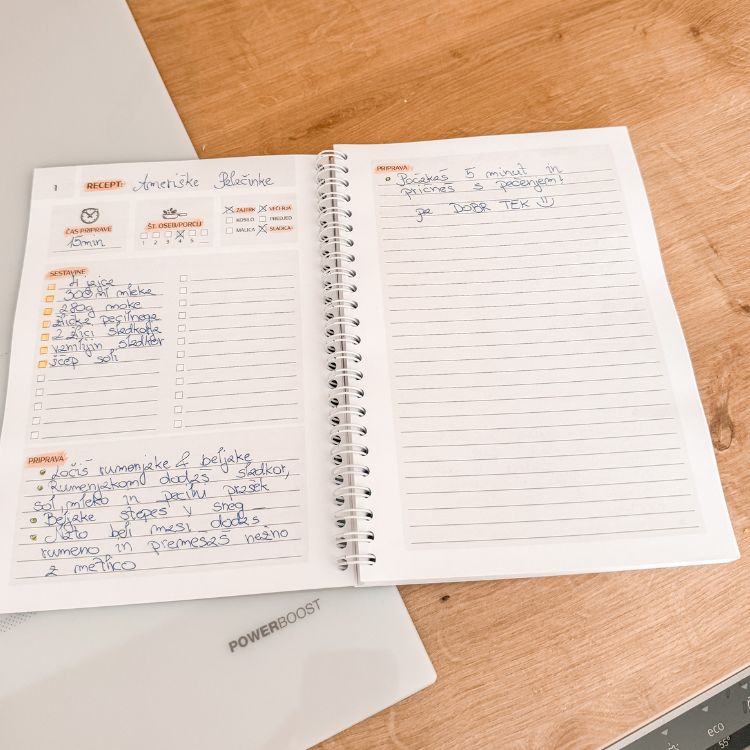 1 RECEPT: Ameriške Palačinke
ČAS PRIPRAVE
15min
ŠT. OSEB/PORCIJ
1 2 3 4 5
ZAJTRK VEČERJA
KOSILO PREDJED
MALICA SLADICA
SESTAVINE
4 jajce
300 ml mleka
280g moke
žlička pecilnega
2 žlici sladkorja
vanilijin sladkor
ščep soli
PRIPRAVA
Ločiš rumenjake & beljake
Rumenjakom dodaš sladkor,
sol, mleko in pecilni prašek
Beljake stepeš v sneg
Nato beli masi dodaš
rumeno in premešaš nežno
z metlico
PRIPRAVA
Počakaš 5 minut in
pričneš s pečenjem!
pa DOBR TEK
POWERBOOST
eco
55°